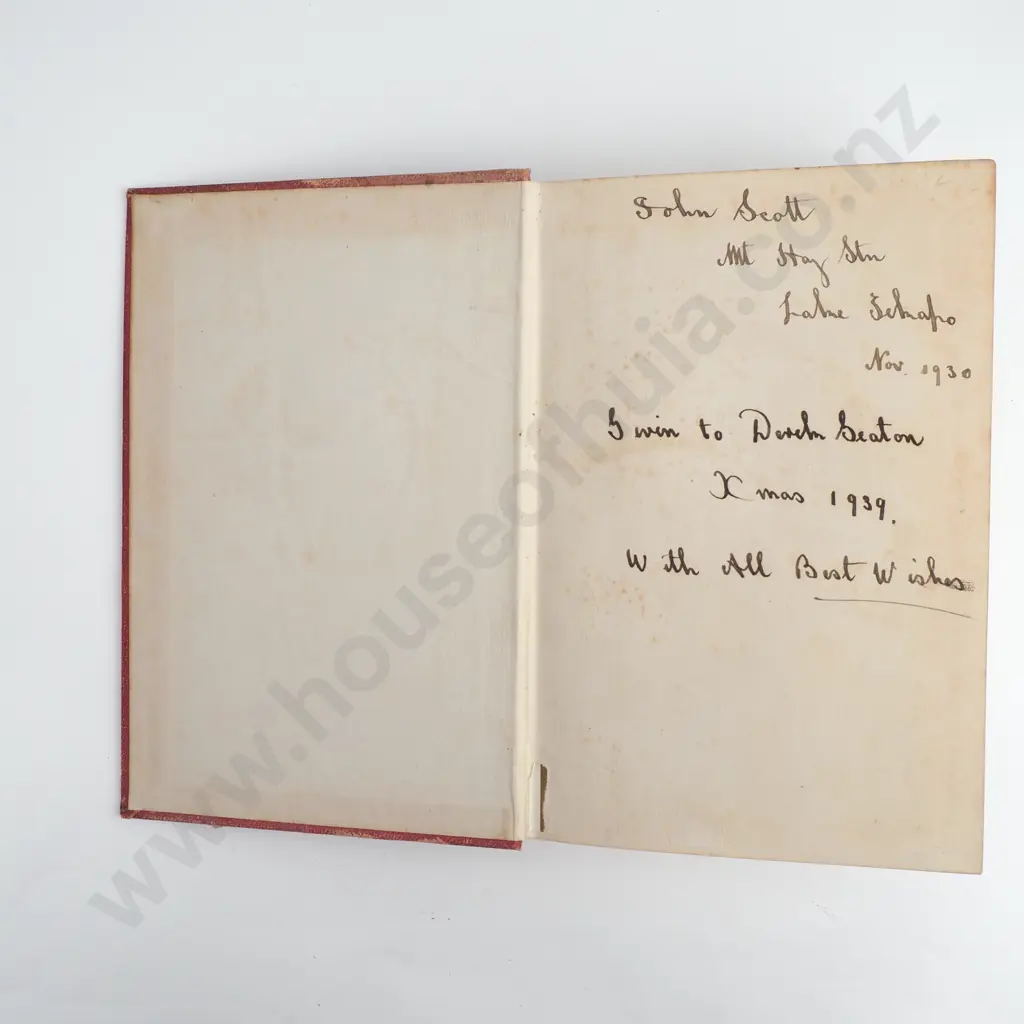 John Scott
Mt Hay Stn
Lake Tekapo
Nov. 1930
Given to Derek Seaton
Xmas 1939.
With All Best Wishes
www.houseofhuia.co.nz